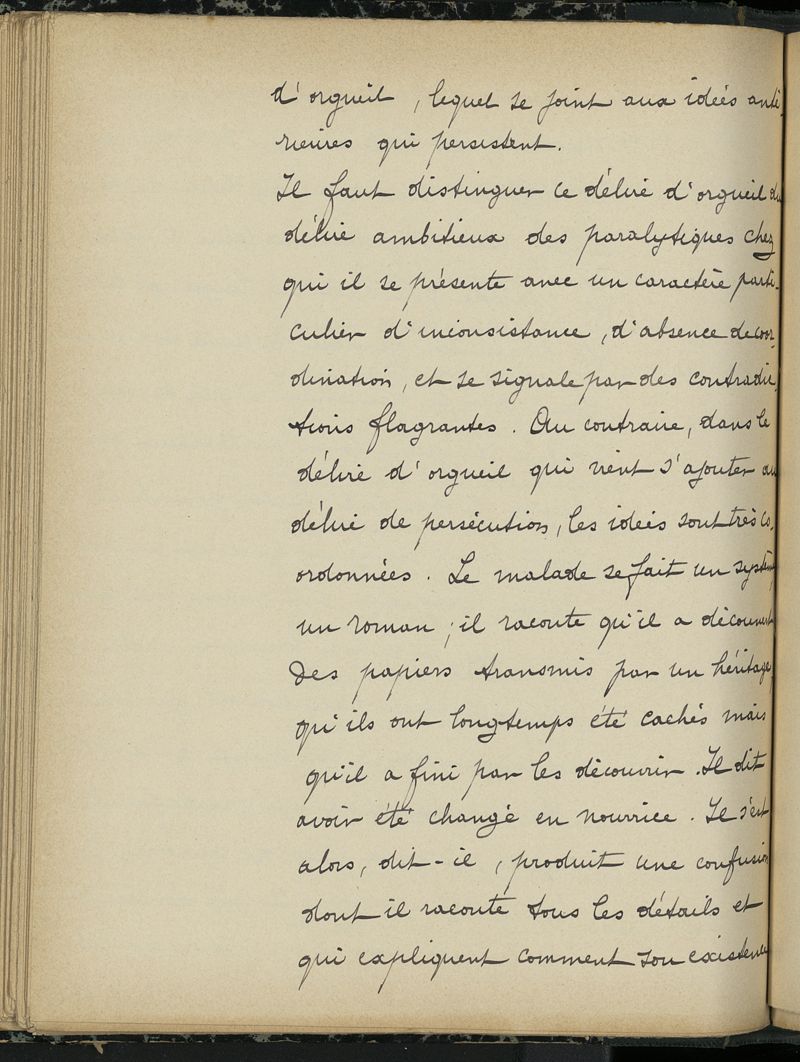 d'orgueil, lequel se joint aux idées anté-
rieures qui persistent.
Il faut distinguer ce délire d'orgueil du
délire ambitieux des paralytiques chez
qui il se présente avec un caractère parti-
culier d'inconsistance, d'absence de coor-
dination, et se signale par des contradic-
tions flagrantes. Au contraire, dans le
délire d'orgueil qui vient s'ajouter au
délire de persécution, les idées sont très co-
ordonnées. Le malade se fait un système
un roman ; il raconte qu'il a découvert
des papiers transmis par un héritage,
qu'ils ont longtemps été cachés mais
qu'il a fini par les découvrir. Il dit
avoir été changé en nourrice. Il s'est
alors, dit-il, produit une confusion
dont il raconte tous les détails et
qui expliquent comment son existence